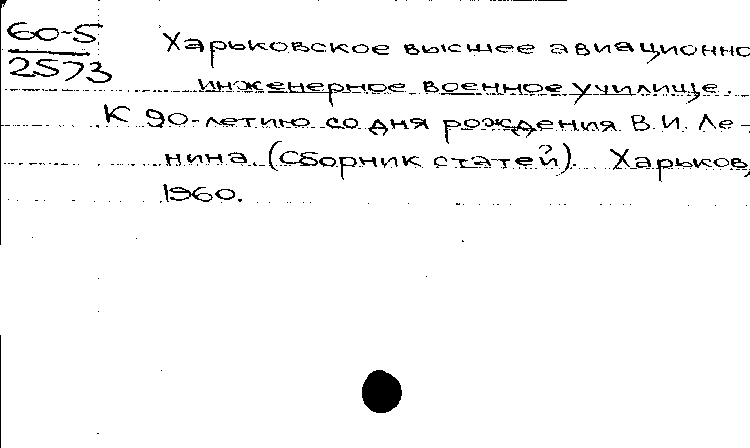 60-5
2573
Харьковское высшее авиационно
инженерное военное училище.
К 90-летию со дня рождения В.И. Ле-
нина. (Сборник статей). Харьков,
1960.